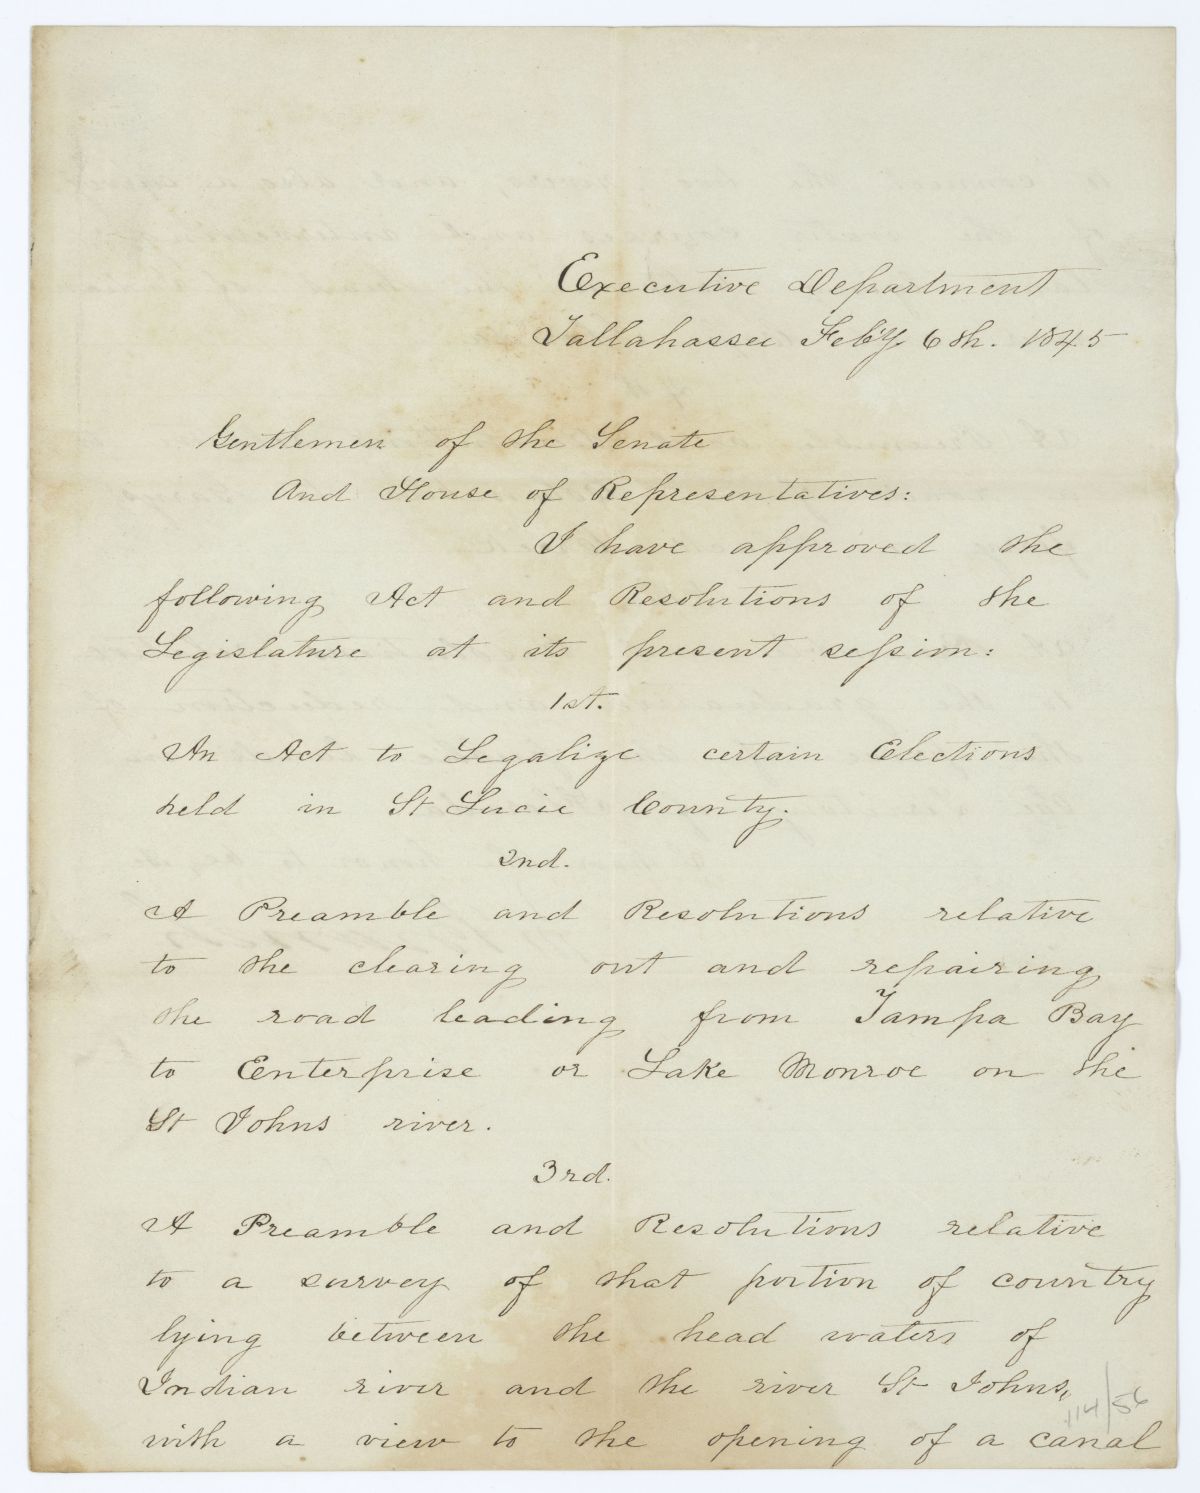 Executive Department
Tallahassee Feb'y 6th. 1845
Gentlemen of the Senate
And House of Representatives:
I have approved the
following Act and Resolutions of the
Legislature at its present session:
1st.
An Act to Legalize certain Elections
held in St Lucie County.
2nd.
A Preamble and Resolutions relative
to the clearing out and repairing
the road leading from Tampa Bay
to Enterprise or Lake Monroe on the
St Johns river.
3rd.
A Preamble and Resolutions relative
to a survey of that portion of country
lying between the head waters of
Indian river and the river St Johns,
with a view to the opening of a canal
114/56